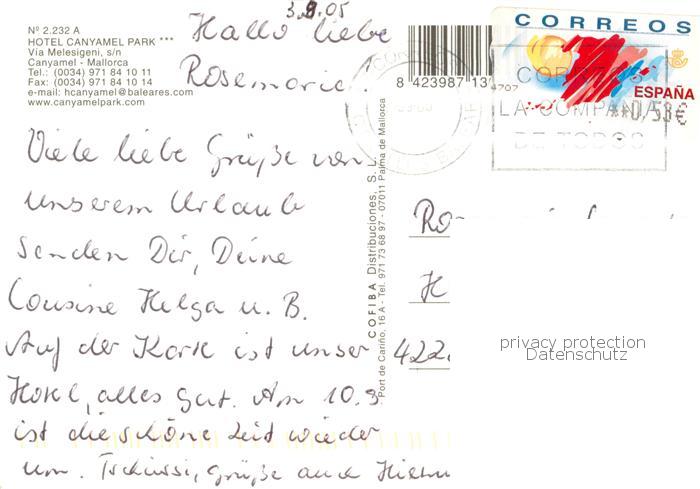 3.9.05
Hallo liebe
Rosemarie
Nº 2.232 A
HOTEL CANYAMEL PARK ***
Via Melesigeni, s/n
Canyamel - Mallorca
Tel.: (0034) 971 84 10 11
Fax: (0034) 971 84 10 14
e-mail: hcanyamel@baleares.com
www.canyamelpark.com
Viele liebe Grüße von
unserem Urlaub
senden Dir, Deine
Cousine Helga u. B.
Auf der Karte ist unser
Hotel, alles gut. Am 10.9
ist die schöne Zeit wieder
um. Tschüssi, Grüße auch
COFIBA Distribuciones, S. L.
Port de Cariño, 16 A - Tel. 971 73 68 97 - 07011 Palma de Mallorca
8 423987 13
4707
CORREOS
ESPAÑA
**0,53€
CORREOS
LA COMPAÑ
DE TODOS
Ro
H
422.
privacy protection
Datenschutz